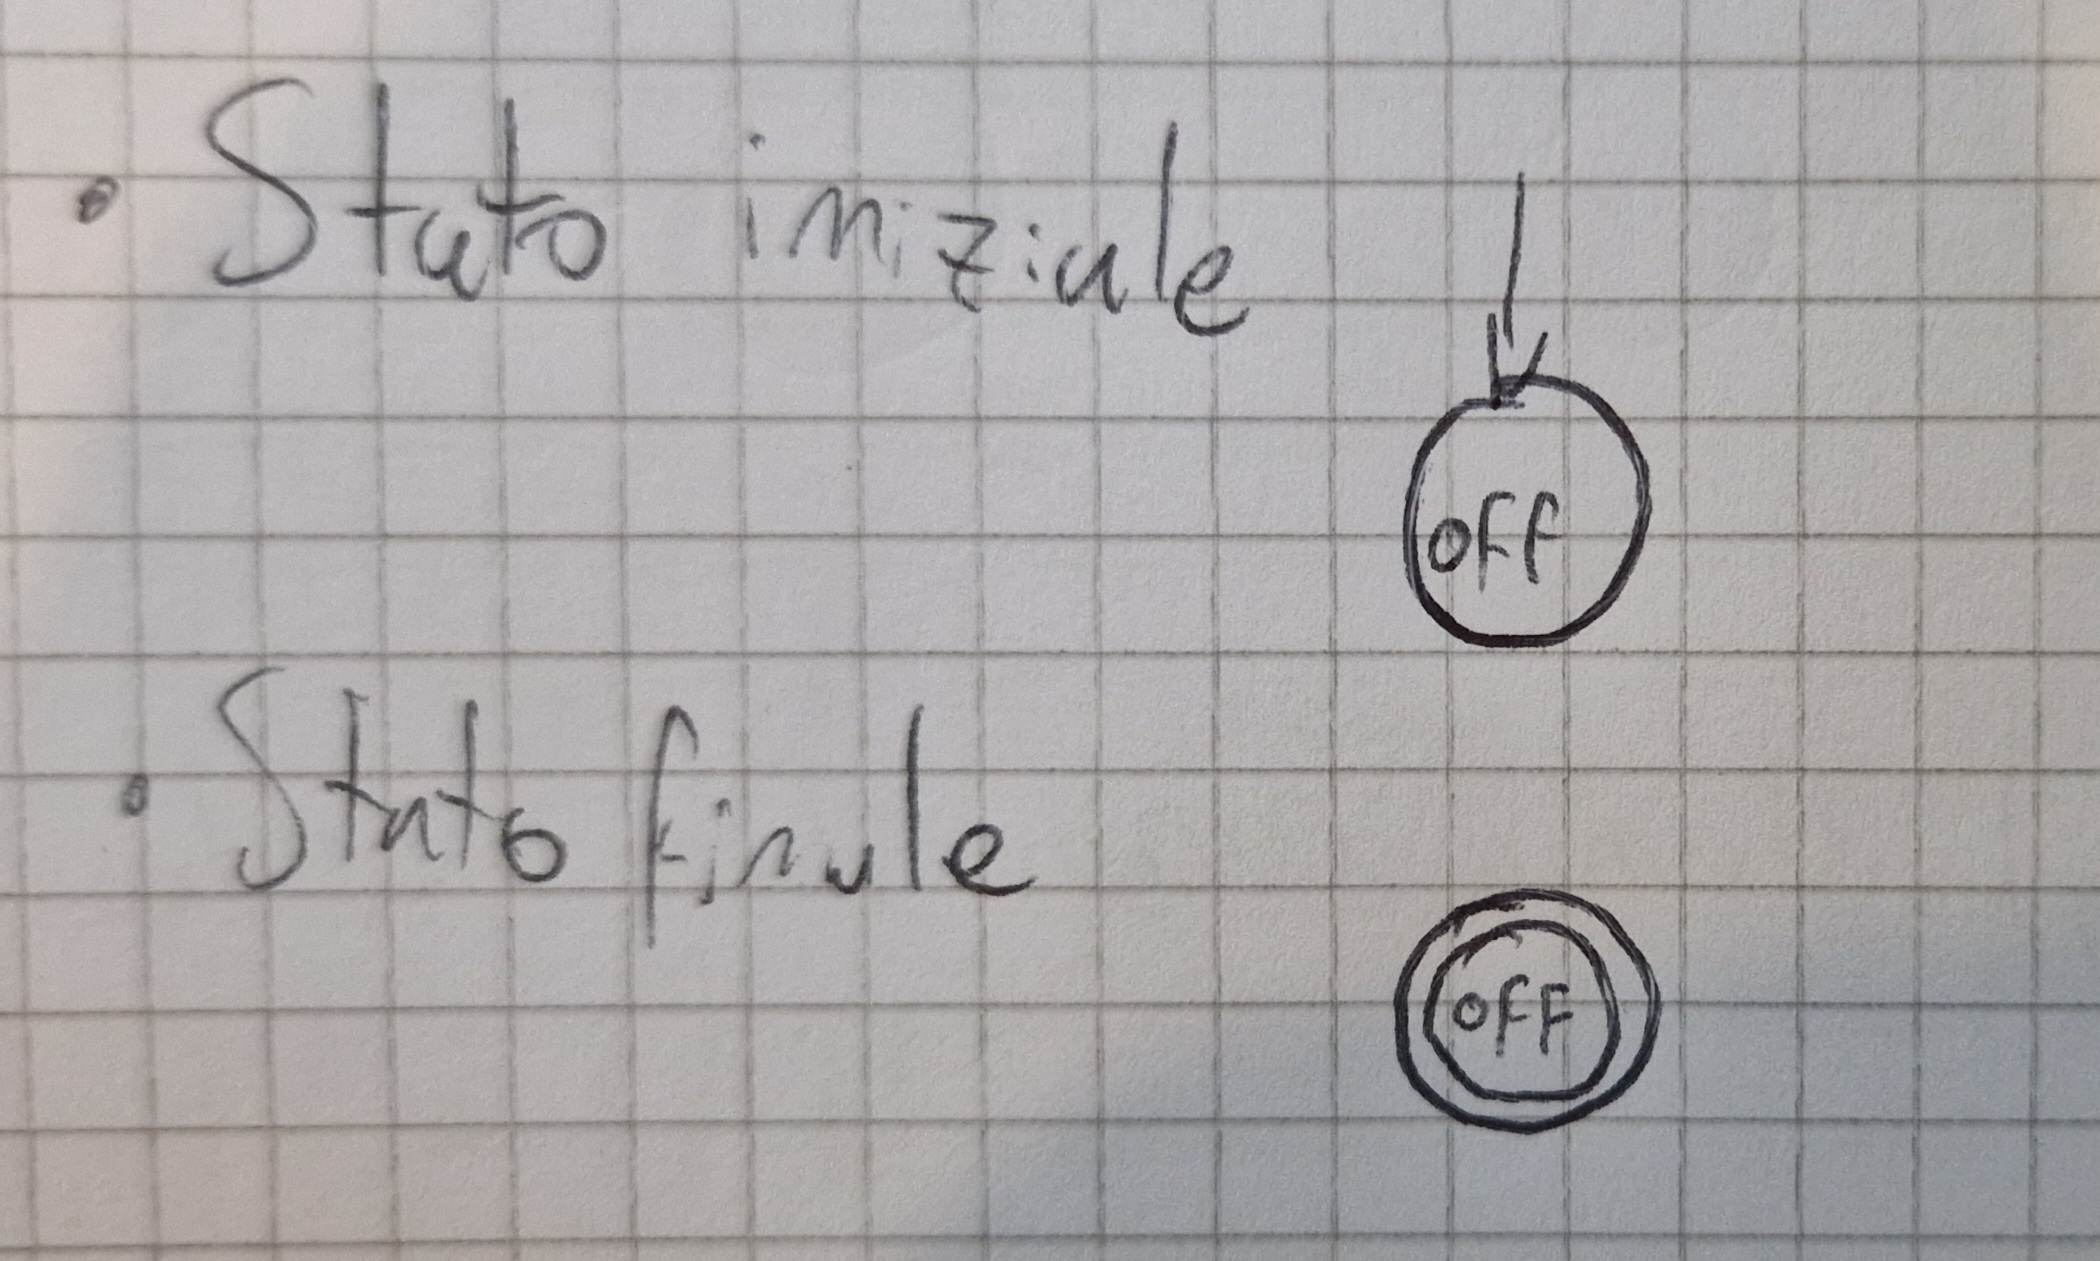 • Stato iniziale
OFF
• Stato finale
OFF